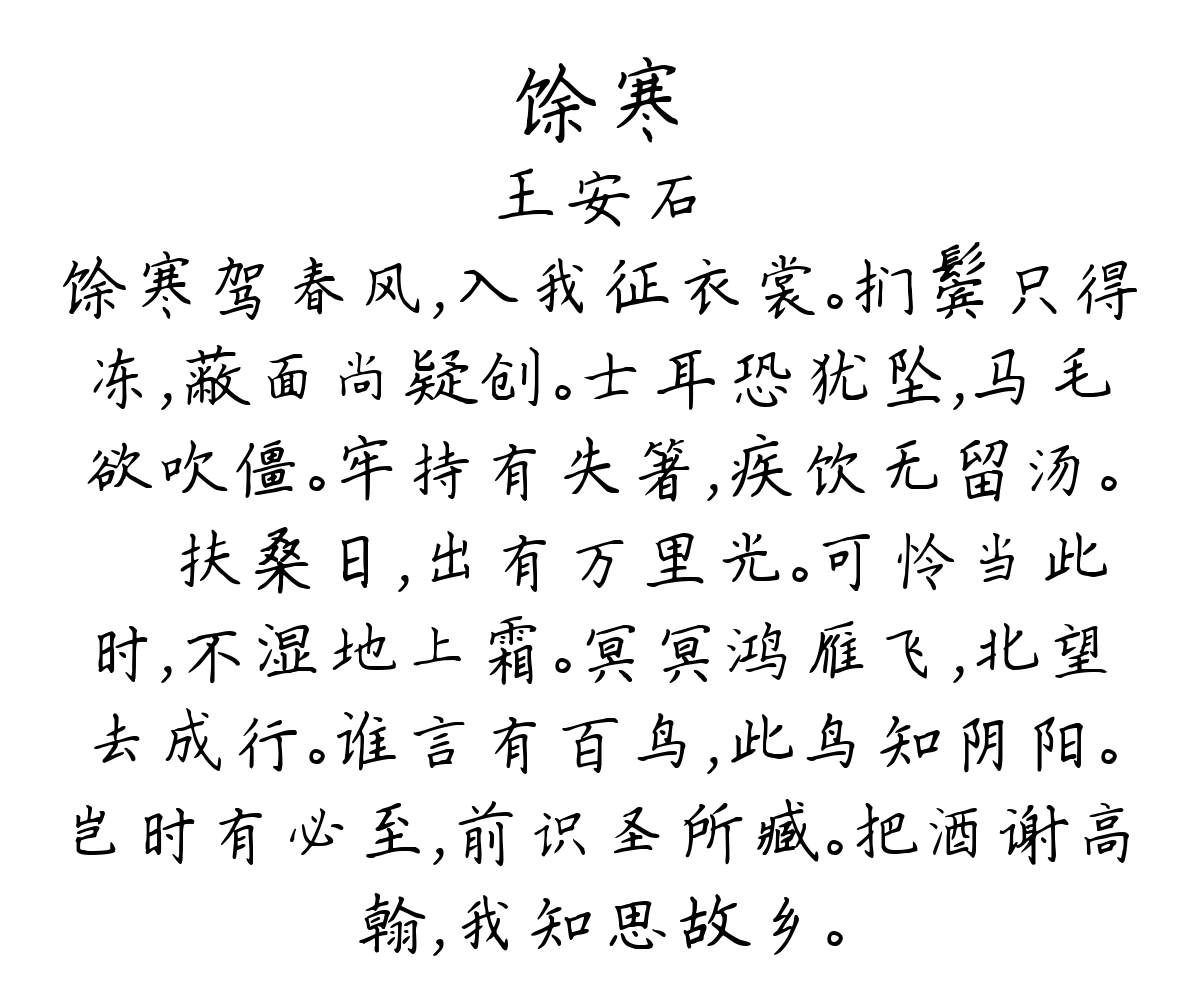 馀寒
王安石
馀寒驾春风,入我征衣裳。扪鬓只得
冻,蔽面尚疑创。士耳恐犹坠,马毛
欲吹僵。牢持有失箸,疾饮无留汤。
扶桑日,出有万里光。可怜当此
时,不湿地上霜。冥冥鸿雁飞,北望
去成行。谁言有百鸟,此鸟知阴阳。
岂时有必至,前识圣所臧。把酒谢高
翰,我知思故乡。